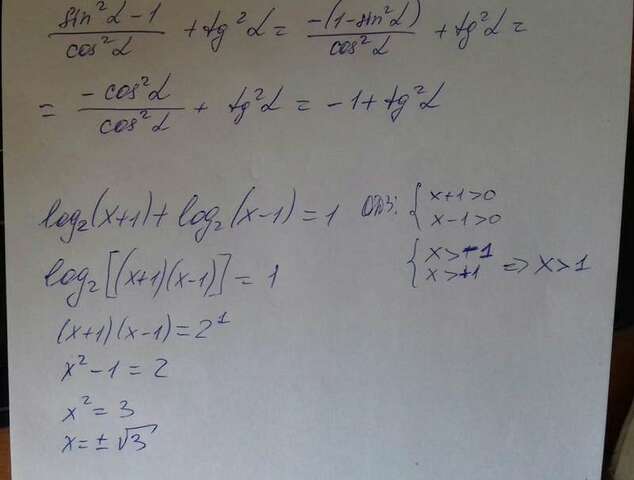 (sin²α - 1)/(cos²α) + tg²α = (-(1-sin²α))/(cos²α) + tg²α =
= (-cos²α)/(cos²α) + tg²α = -1 + tg²α
log₂(x+1) + log₂(x-1) = 1 ОДЗ: { x+1>0
x-1>0
log₂[(x+1)(x-1)] = 1 { x>-1
x>1 => x>1
(x+1)(x-1) = 2¹
x² - 1 = 2
x² = 3
x = ± √3